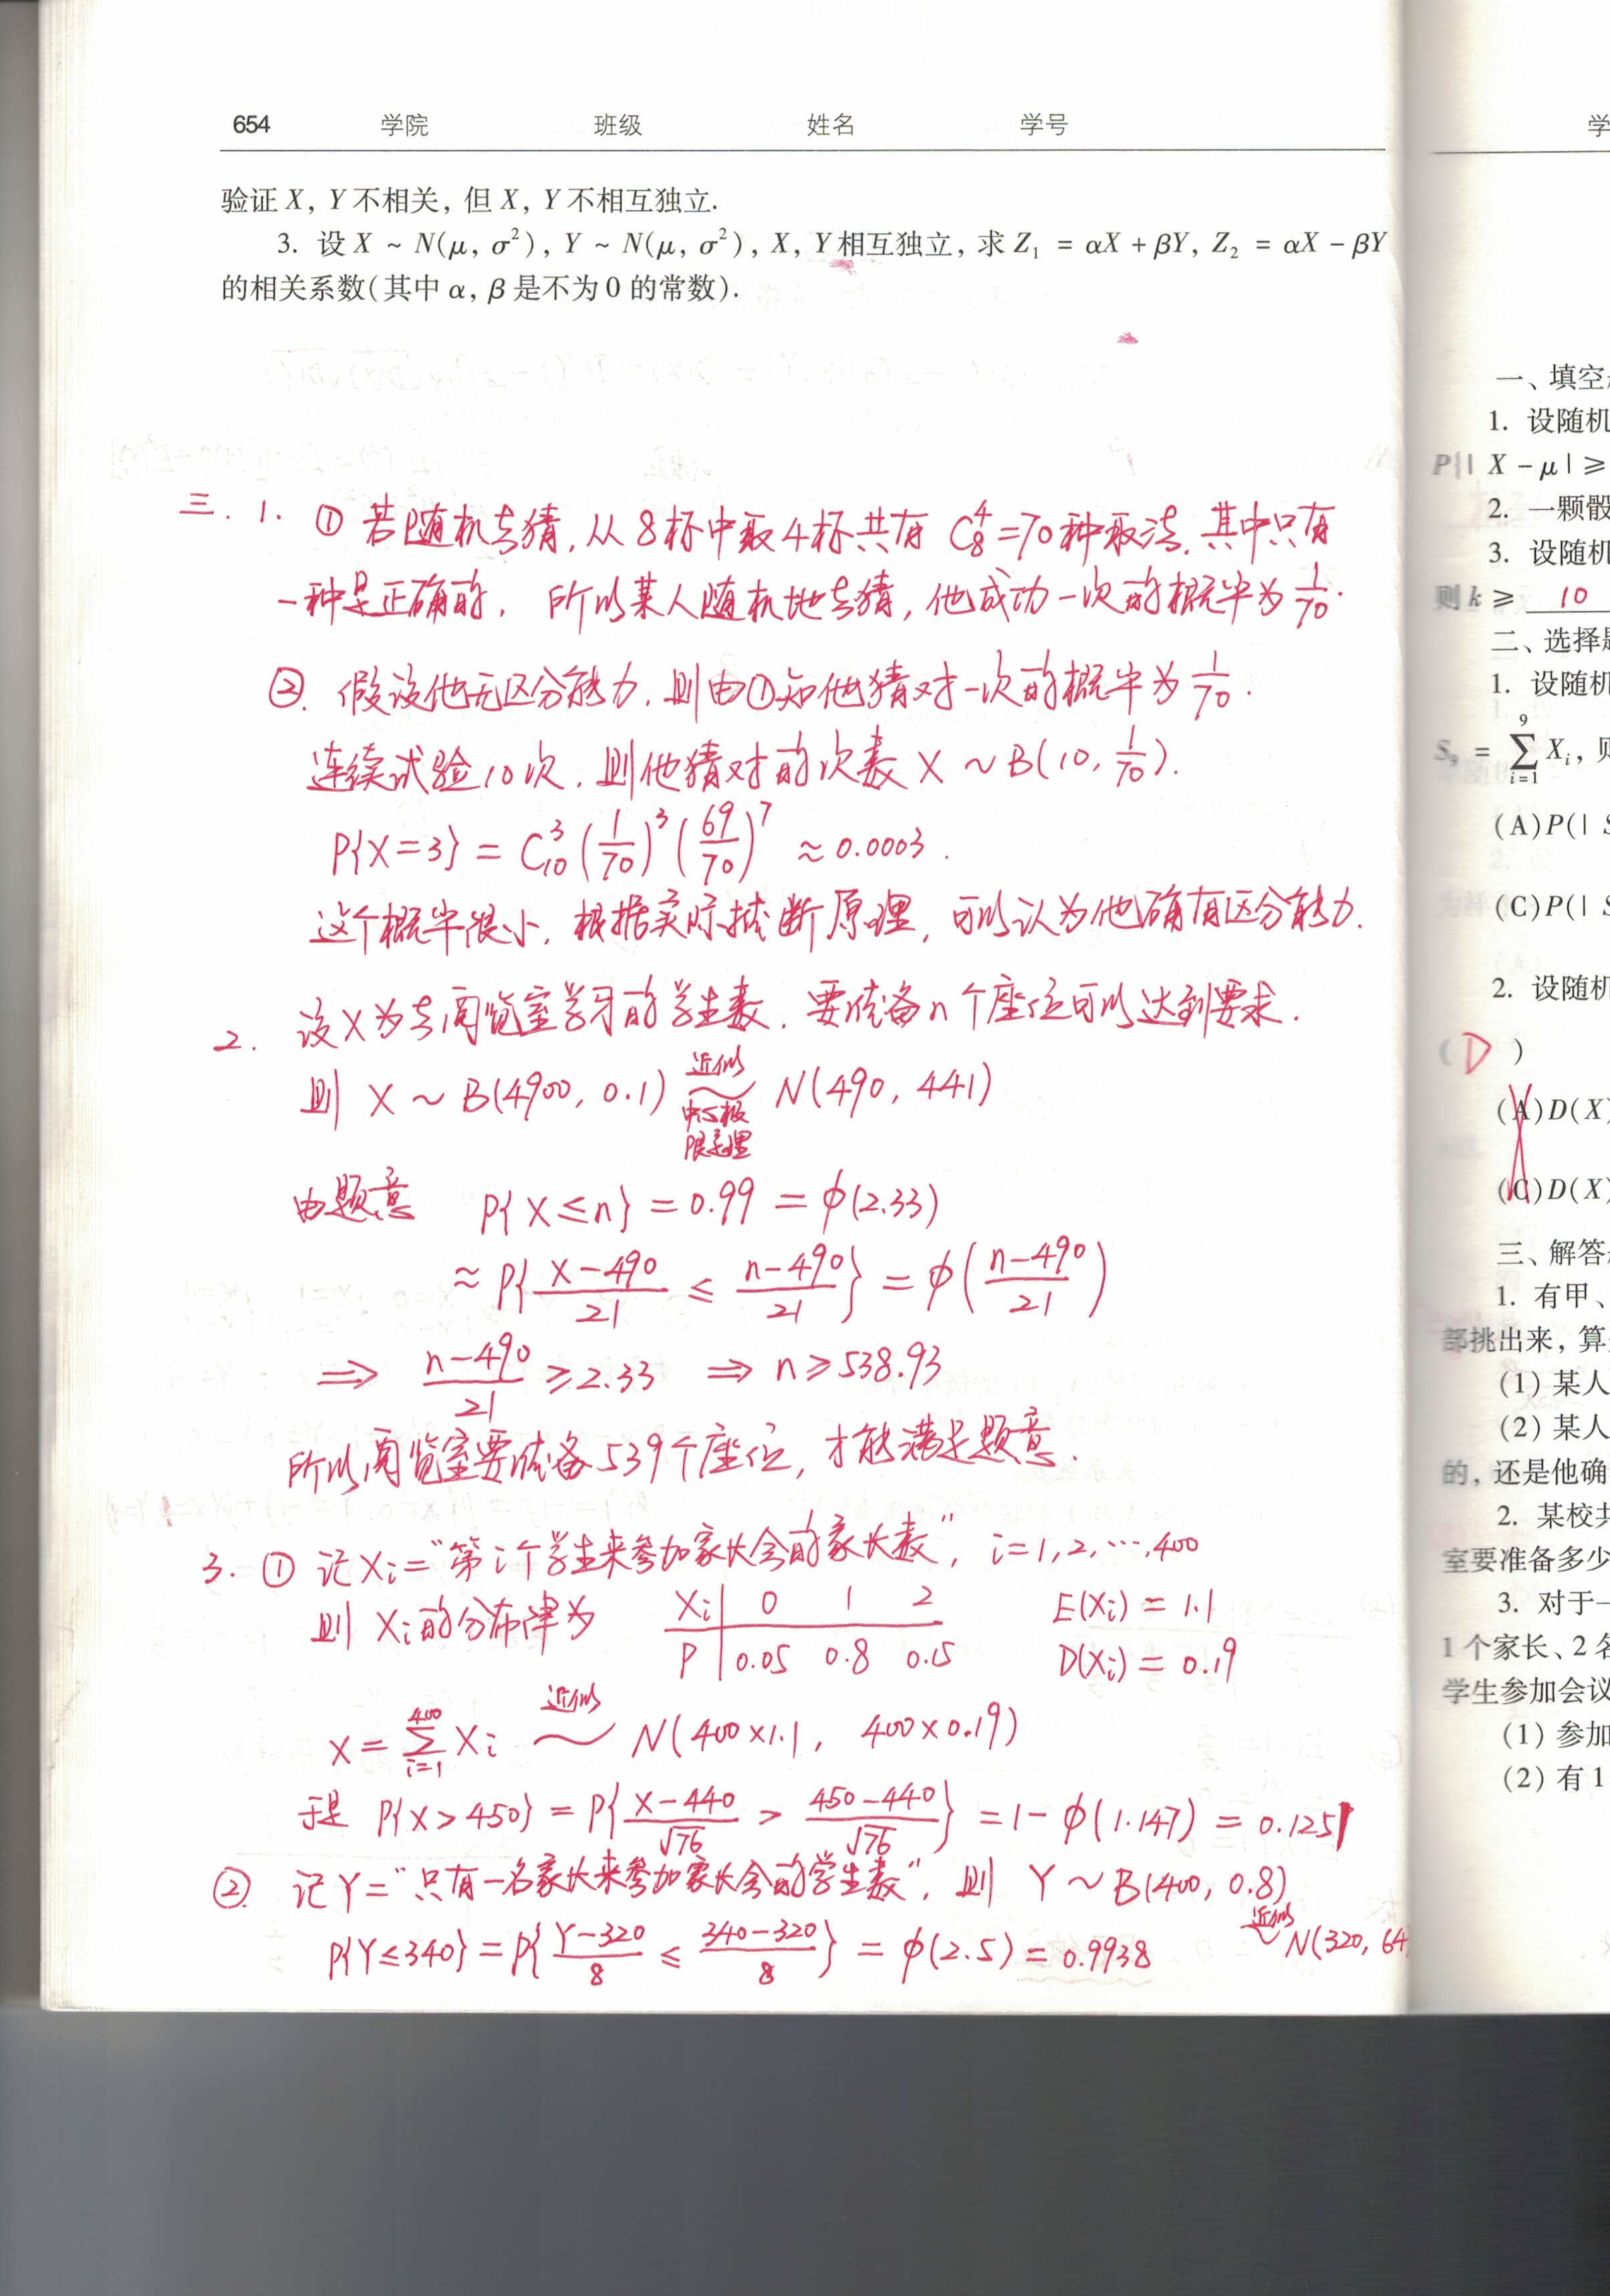 654 学院 班级 姓名 学号
验证 X, Y 不相关, 但 X, Y 不相互独立.
3. 设 X ~ N(μ, σ²), Y ~ N(μ, σ²), X, Y 相互独立, 求 Z₁ = αX + βY, Z₂ = αX − βY
的相关系数(其中 α, β 是不为 0 的常数).
三. 1. ① 若随机去猜, 从8杯中取4杯共有 C₈⁴=70种取法, 其中只有
一种是正确的, 所以某人随机地去猜, 他成功一次的概率为 1/70.
②. 假设他无区分能力, 则由①知他猜对一次的概率为 1/70.
连续试验10次, 则他猜对的次数 X ~ B(10, 1/70).
P{X=3} = C₁₀³ (1/70)³ (69/70)⁷ ≈ 0.0003.
这个概率很小, 根据实际推断原理, 可以认为他确有区分能力.
2. 设X为去阅览室学习的学生数, 要准备n个座位可以达到要求.
则 X ~ B(4900, 0.1) 近似 ~ 中心极限定理 N(490, 441)
由题意 P{X≤n} = 0.99 = φ(2.33)
≈ P{(X−490)/21 ≤ (n−490)/21} = φ((n−490)/21)
⇒ (n−490)/21 ≥ 2.33 ⇒ n ≥ 538.93
所以阅览室要准备539个座位, 才能满足题意.
3. ① 记 Xi = "第i个学生来参加家长会的家长数", i=1,2,…,400
则 Xi的分布律为 Xi 0 1 2 E(Xi) = 1.1
P 0.05 0.8 0.15 D(Xi) = 0.19
X = ∑_{i=1}^{400} Xi 近似 ~ N(400×1.1, 400×0.19)
于是 P{X>450} = P{(X−440)/√76 > (450−440)/√76} = 1−φ(1.147) = 0.1251
② 记Y="只有一名家长来参加家长会的学生数", 则 Y ~ B(400, 0.8)
近似 ~ N(320, 64
P{Y≤340} = P{(Y−320)/8 ≤ (340−320)/8} = φ(2.5) = 0.9938
学
一、填空
1. 设随机
P{| X − μ | ≥
2. 一颗骰
3. 设随机
则 k ≥ 10
二、选择题
1. 设随机
S₉ = ∑_{i=1}^{9} Xᵢ,
(A) P(|
(C) P(|
2. 设随机
( D )
(A) D(X)
(C) D(X)
三、解答
1. 有甲、
部挑出来, 算
(1) 某人
(2) 某人
的, 还是他确
2. 某校共
室要准备多少
3. 对于一
1 个家长、2 名
学生参加会议
(1) 参加
(2) 有 1